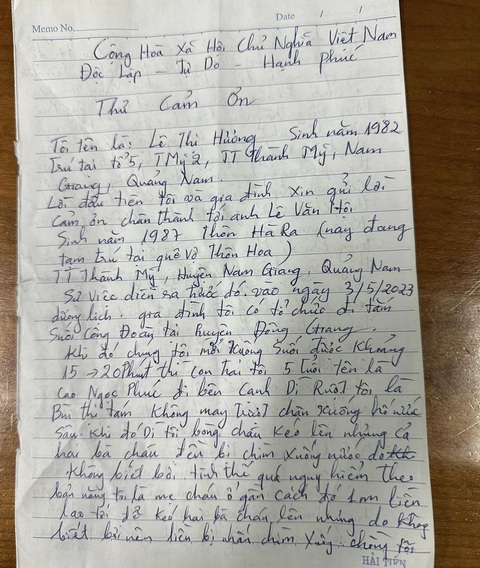 Memo No.
Date / /
Cộng Hoà Xã Hội Chủ Nghĩa Việt Nam
Độc Lập - Tự Do - Hạnh phúc
Thư Cảm Ơn
Tôi tên là: Lê Thị Hương Sinh năm 1982
Trú tại tổ 5, T Mỹ 2, TT Thành Mỹ, Nam
Giang, Quảng Nam.
Lời đầu tiên tôi và gia đình xin gửi lời
Cảm ơn chân thành tới anh Lê Văn Hội
Sinh năm 1987 Thôn Hà Ra (nay đang
tạm trú tại quê vợ Thôn Hoa)
TT Thành Mỹ, Huyện Nam Giang, Quảng Nam
Sự việc diễn ra trước đó vào ngày 3/5/2023
dương lịch. gia đình tôi có tổ chức đi tắm
Suối Công Đoàn tại huyện Đông Giang.
Khi đó chúng tôi mới xuống suối được khoảng
15 → 20 phút thì con trai tôi 5 tuổi tên là
Cao Ngọc Phúc đi bên cạnh Dì Ruột tôi là
Bùi thị Tám không may trượt chân xuống hố nước
sâu. Khi đó Dì tôi bồng cháu kéo lên nhưng cả
hai bà cháu đều bị chìm xuống nước do
không biết bơi, tình thế quá nguy hiểm theo
bản năng tôi là mẹ cháu ở gần cách đó 1m liền
lao tới để kéo hai bà cháu lên nhưng do không
biết bơi nên liền bị nhấn chìm xuống. chồng tôi
HẢI TIẾN